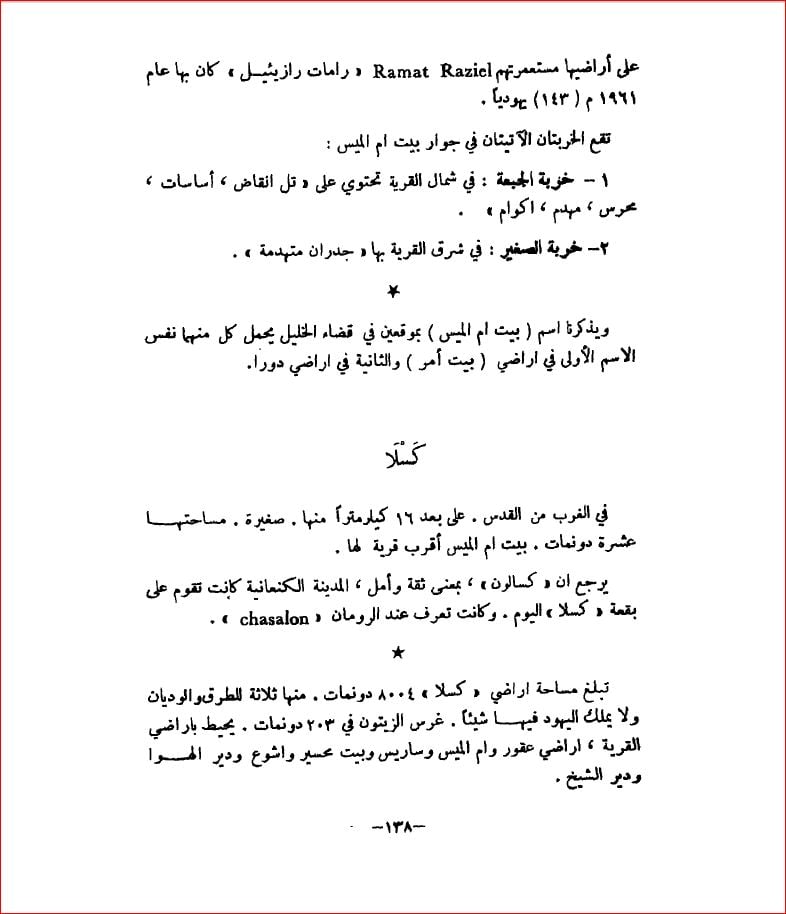 على أراضيها مستعمرتهم Ramat Raziel « رامات رازيئيل » كان بها عام
١٩٦١ م ( ١٤٣ ) يهودياً .
تقع الخربتان الآتيتان في جوار بيت ام الميس :
١ – خربة الجبعة : في شمال القرية تحتوي على « تل انقاض ، أساسات ،
محرس ، مهدم ، اكوام » .
٢– خربة الصغير : في شرق القرية بها « جدران متهدمة » .
★
ويذكرنا اسم ( بيت ام الميس ) بموقعين في قضاء الخليل يحمل كل منهما نفس
الاسم الأولى في اراضي ( بيت أمر ) والثانية في اراضي دورا.
كَسْلَا
في الغرب من القدس . على بعد ١٦ كيلرمتراً منها . صغيرة . مساحتهـا
عشرة دونمات . بيت ام الميس أقرب قرية لها .
يرجع ان « كسالون » ، بمعنى ثقة وأمل ، المدينة الكنعانية كانت تقوم على
بقعة « كسلا » اليوم . وكانت تعرف عند الرومان « chasalon » .
★
تبلغ مساحة اراضي « كسلا » ٨٠٠٤ دونمات . منها ثلاثة للطرق والوديان
ولا يملك اليهود فيهـا شيئاً . غرس الزيتون في ٢٠٣ دونمات . يحيط باراضي
القرية ، اراضي عقور وام الميس وساريس وبيت محسير واشوع ودير الهـوا
ودير الشيخ .
–١٣٨–